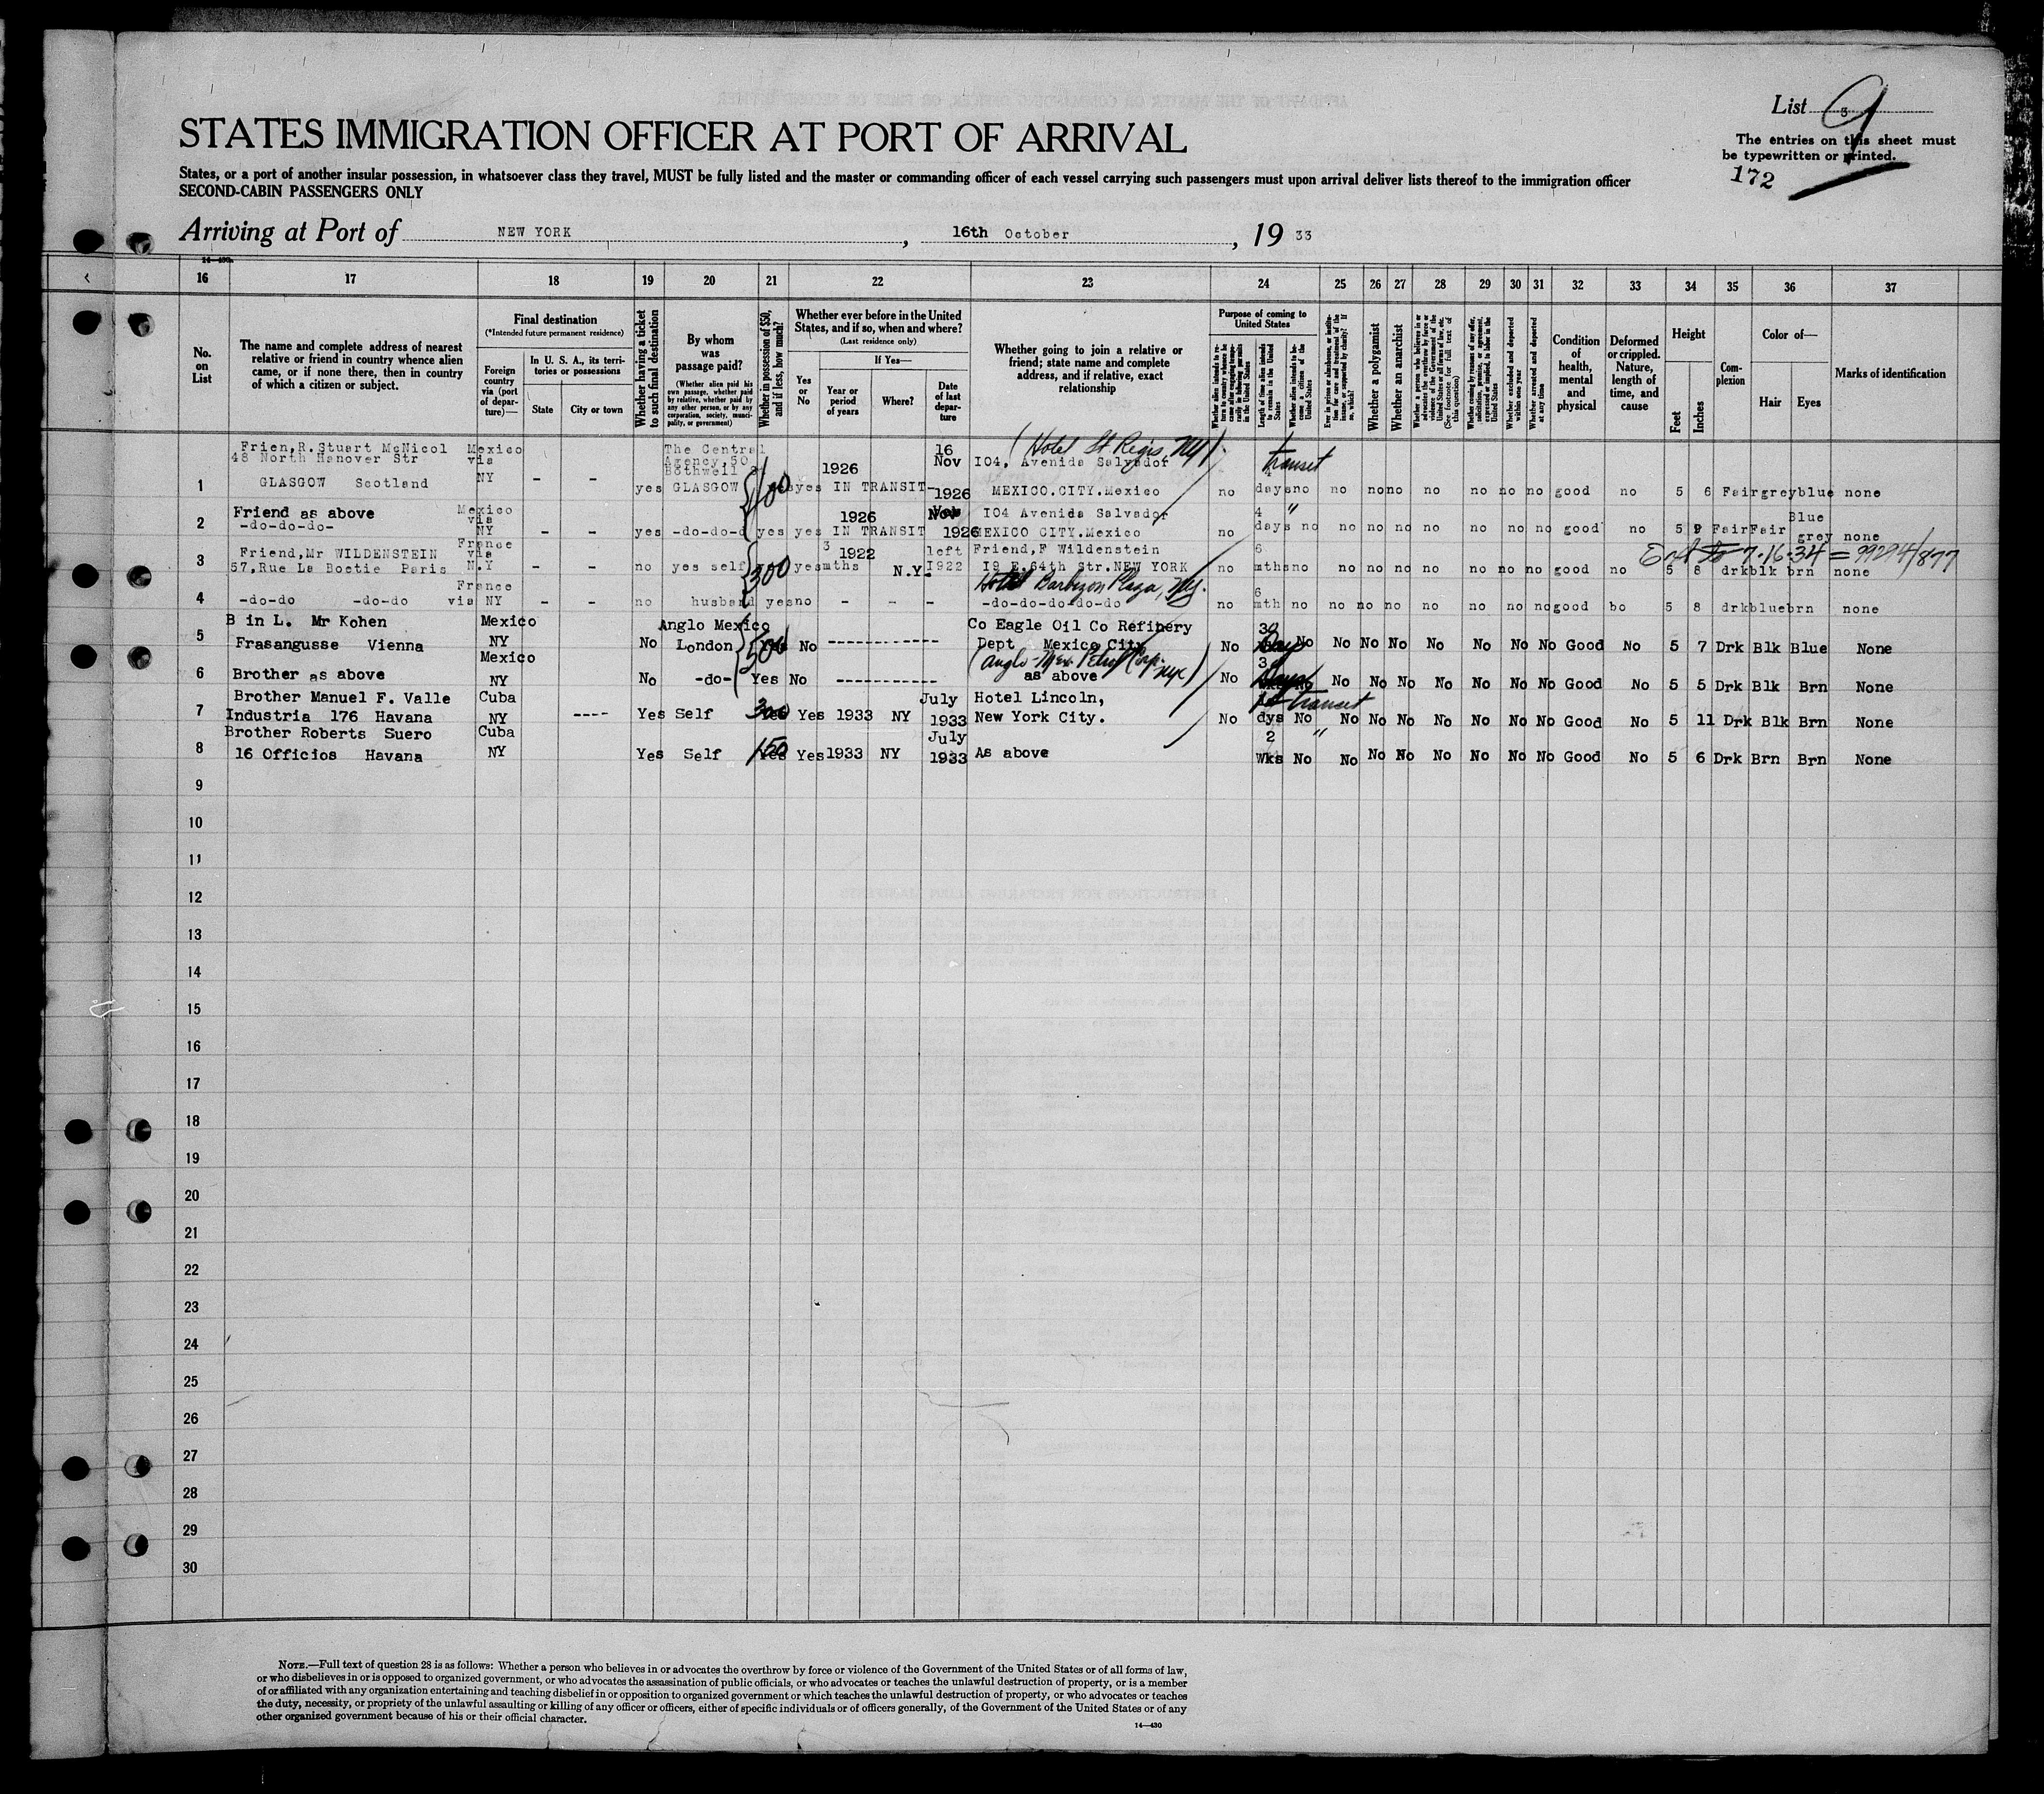 List 5 9
The entries on this sheet must
be typewritten or printed.
172
STATES IMMIGRATION OFFICER AT PORT OF ARRIVAL
States, or a port of another insular possession, in whatsoever class they travel, MUST be fully listed and the master or commanding officer of each vessel carrying such passengers must upon arrival deliver lists thereof to the immigration officer
SECOND-CABIN PASSENGERS ONLY
Arriving at Port of NEW YORK, 16th October, 19 33
16 17 18 19 20 21 22 23 24 25 26 27 28 29 30 31 32 33 34 35 36 37
No. on List
The name and complete address of nearest relative or friend in country whence alien came, or if none there, then in country of which a citizen or subject.
Final destination
(*Intended future permanent residence)
Foreign country via (port of departure)—
In U. S. A., its territories or possessions
State
City or town
Whether having a ticket to such final destination
By whom was passage paid?
(Whether alien paid his own passage, whether paid by relative, whether paid by any other person, or by any corporation, society, municipality, or government)
Whether in possession of $50, and if less, how much?
Whether ever before in the United States, and if so, when and where?
(Last residence only)
Yes or No
If Yes—
Year or period of years
Where?
Date of last departure
Whether going to join a relative or friend; state name and complete address, and if relative, exact relationship
Purpose of coming to United States
Length of time alien intends to remain in the United States
Whether alien intends to become a citizen of the United States
Whether a polygamist
Whether an anarchist
Whether excluded and deported within one year
Whether arrested and deported at any time
Condition of health, mental and physical
Deformed or crippled. Nature, length of time, and cause
Height
Feet
Inches
Complexion
Color of—
Hair
Eyes
Marks of identification
Frien,R.Stuart McNicol Mexico The Central 16 (Hotel St Regis, NY)
48 North Hanover Str via Agency,50 Bothwell 1926 Nov I04, Avenida Salvador 4 transit
1 GLASGOW Scotland NY - - yes GLASGOW 100 yes IN TRANSIT- 1926 MEXICO.CITY.Mexico no days no no no no no no no no good no 5 6 Fair grey blue none
Friend as above Mexico via 1926 Nov I04 Avenida Salvador 4 " Blue
2 -do-do-do- NY - - yes -do-do-d yes yes IN TRANSIT 1926 MEXICO CITY.Mexico no days no no no no no no no no good no 5 9 Fair Fair grey none
Friend,Mr WILDENSTEIN France via 3 1922 left Friend,F Wildenstein 6 7-16-34 = 99294/877
3 57,Rue La Boetie Paris N.Y - - no yes self 300 yes mths N.Y. I922 I9 E.64th Str.NEW YORK no mths no no no no no no no no good no 5 8 drk blk brn none
France Hotel Barbizon Plaza, NY. 6
4 -do-do -do-do via NY - - no husband yes no - - - -do-do-do-do-do no mth no no no no no no no no good bo 5 8 drk blue brn none
B in L. Mr Kohen Mexico Anglo Mexico Co Eagle Oil Co Refinery 3
5 Frasangusse Vienna NY No London 500 No ------------ Dept Mexico City No Days No No No No No No No No Good No 5 7 Drk Blk Blue None
Mexico (Anglo-Mex. Petrol Corp. NYC) 3
6 Brother as above NY No -do- Yes No ------------ as above No Days No No No No No No No No Good No 5 5 Drk Blk Brn None
Brother Manuel F. Valle Cuba July Hotel Lincoln, transit
7 Industria 176 Havana NY ---- Yes Self 300 Yes 1933 NY 1933 New York City. No dys No No No No No No No No Good No 5 11 Drk Blk Brn None
Brother Roberts Suero Cuba July 2 "
8 16 Officios Havana NY Yes Self 150 Yes 1933 NY 1933 As above Wks No No No No No No No No Good No 5 6 Drk Brn Brn None
9
10
11
12
13
14
15
16
17
18
19
20
21
22
23
24
25
26
27
28
29
30
NOTE.—Full text of question 28 is as follows: Whether a person who believes in or advocates the overthrow by force or violence of the Government of the United States or of all forms of law,
or who disbelieves in or is opposed to organized government, or who advocates the assassination of public officials, or who advocates or teaches the unlawful destruction of property, or is a member
of or affiliated with any organization entertaining and teaching disbelief in or opposition to organized government or which teaches the unlawful destruction of property, or who advocates or teaches
the duty, necessity, or propriety of the unlawful assaulting or killing of any officer or officers, either of specific individuals or of officers generally, of the Government of the United States or of any
other organized government because of his or their official character.
14—430